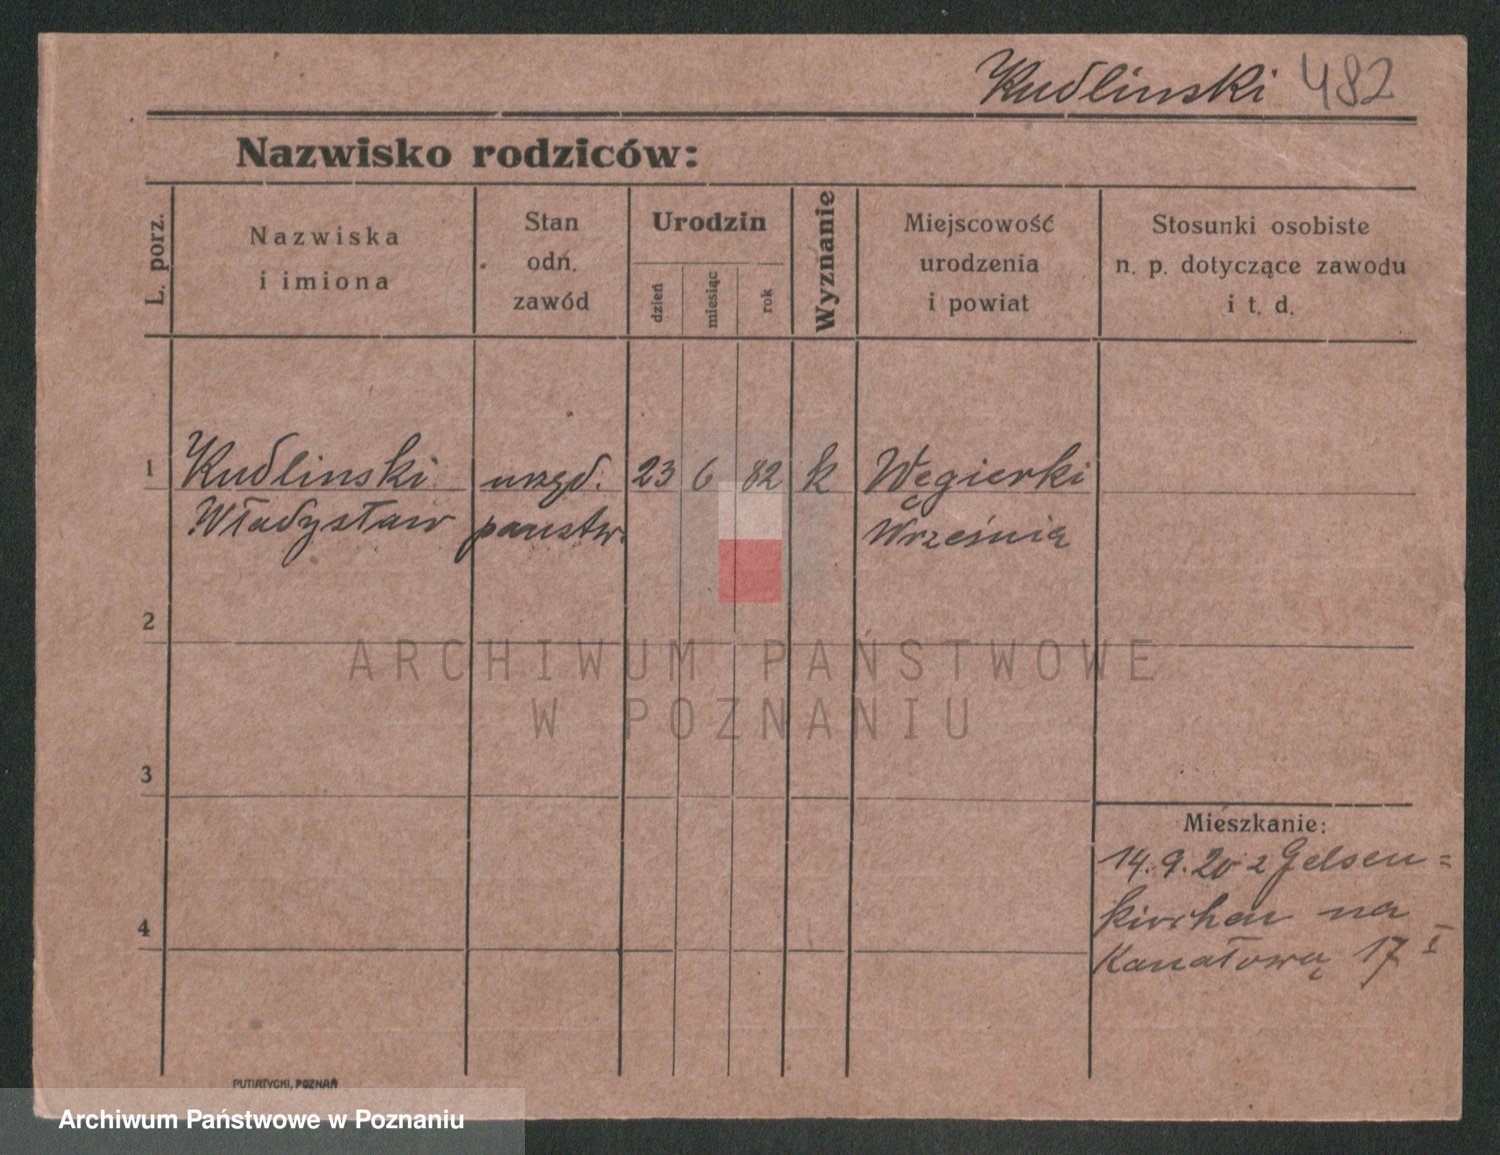 Kudlinski 482
Nazwisko rodziców:
L. porz.
Nazwiska
i imiona
Stan
odn.
zawód
Urodzin
dzień
miesiąc
rok
Wyznanie
Miejscowość
urodzenia
i powiat
Stosunki osobiste
n. p. dotyczące zawodu
i t. d.
1 Kudlinski urzęd. 23 6 82 k Węgierki
Władysław państw. Września
2
ARCHIWUM PAŃSTWOWE
W POZNANIU
3
Mieszkanie:
14.9.20 z Gelsen=
kirchen na
4
Kanałową 17 I
PUTIATYCKI, POZNAŃ
Archiwum Państwowe w Poznaniu